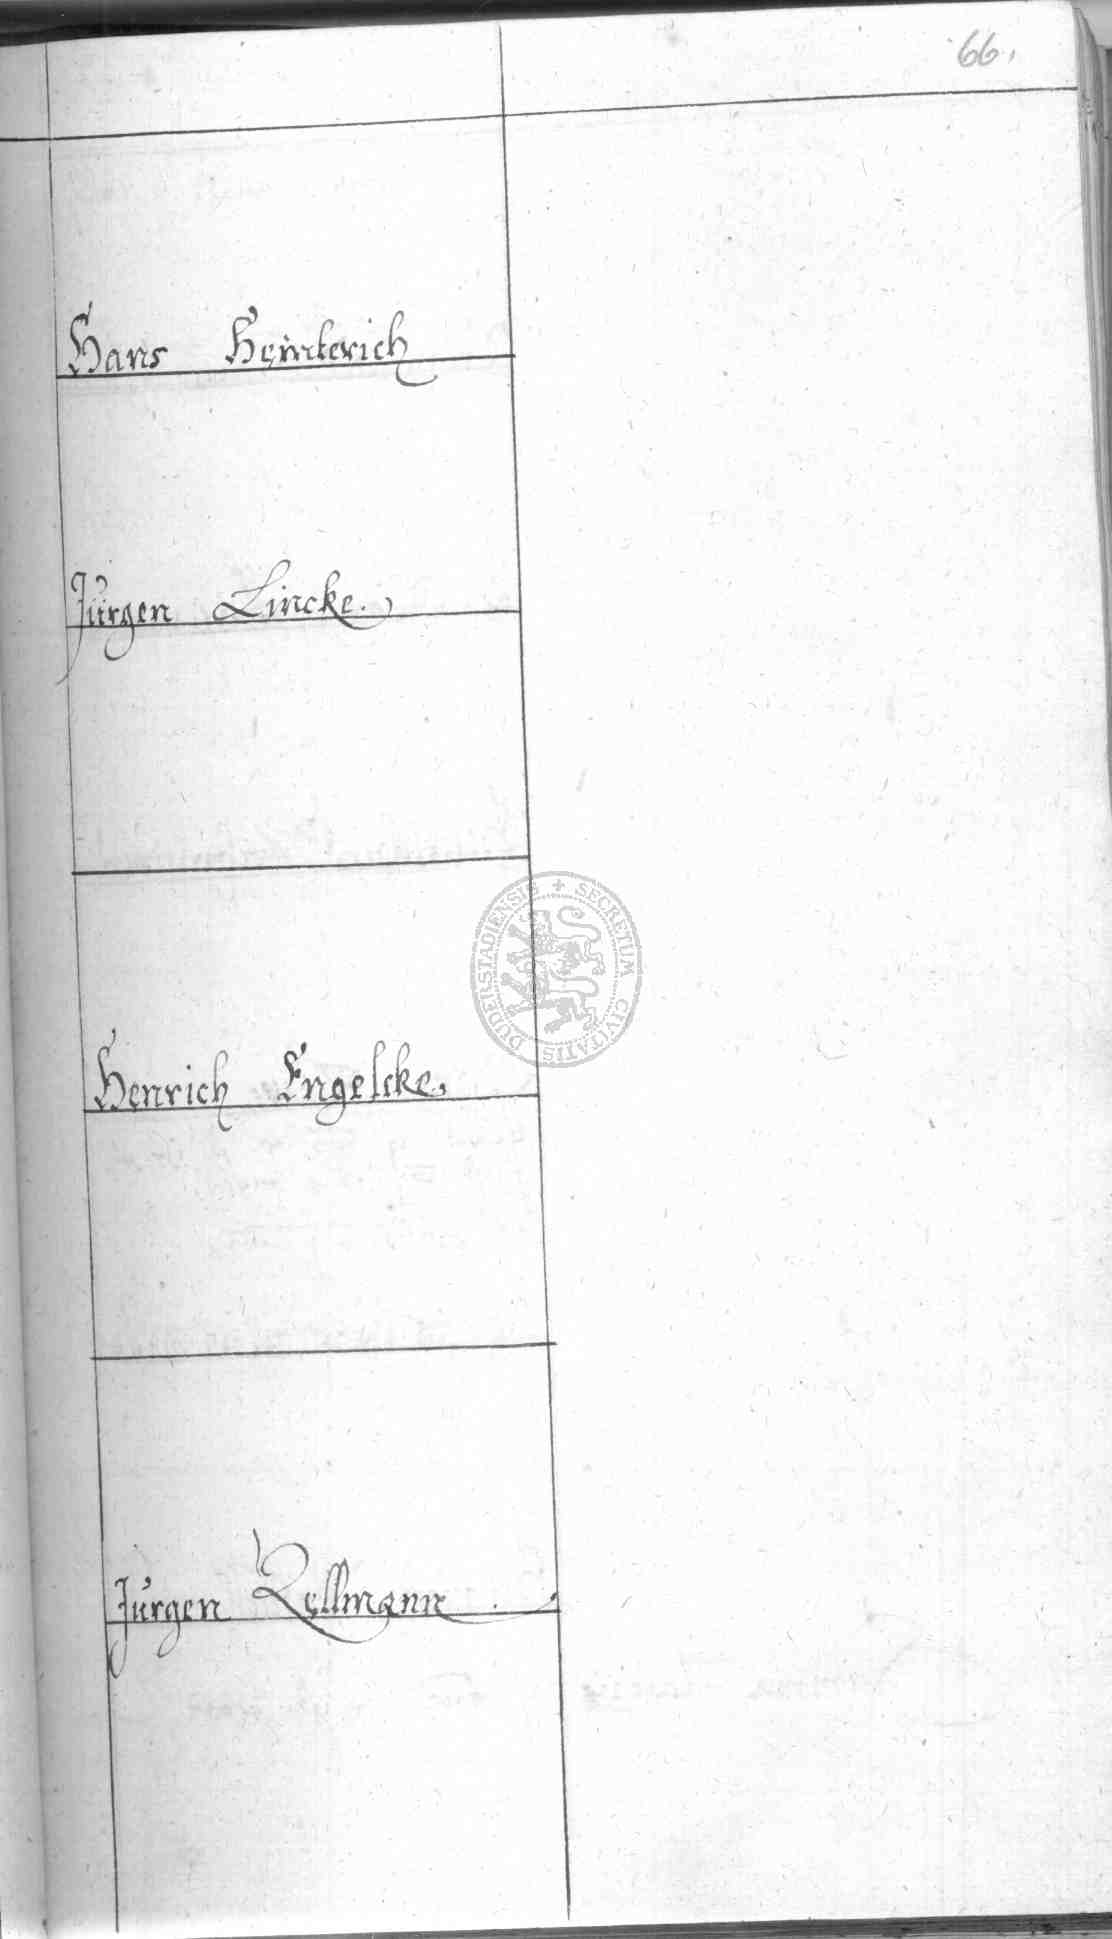 66.
Hans Heinterich
Jürgen Lincke.
DUDERSTADIENSIS + SECRETUM CIVITATIS
Henrich Engelcke.
Jürgen Zellmann